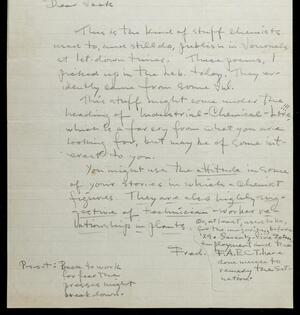 Dear Jack
This is the kind of stuff chemists
used to, and still do, publish in Journals
at let-down times. These poems, I
picked up in the lab. today. They ev-
idently came from some
This stuff might come under the
heading of Industrial-Chemical-Life
which is a far cry from what you are
looking for, but may be of some int-
erest to you.
You might use the attitude in some
of your stories in which a chemist
figures. They are also highly sug-
gestive of technician-worker re-
lationship in plants.
Or, at least, used to be,
for the majority, before
Seventy-Five
employment and the
F.A.E.C.T. have
done much to
remedy the sit-
uation.
Fred.
Back to work
for fear the
presses might
break down.